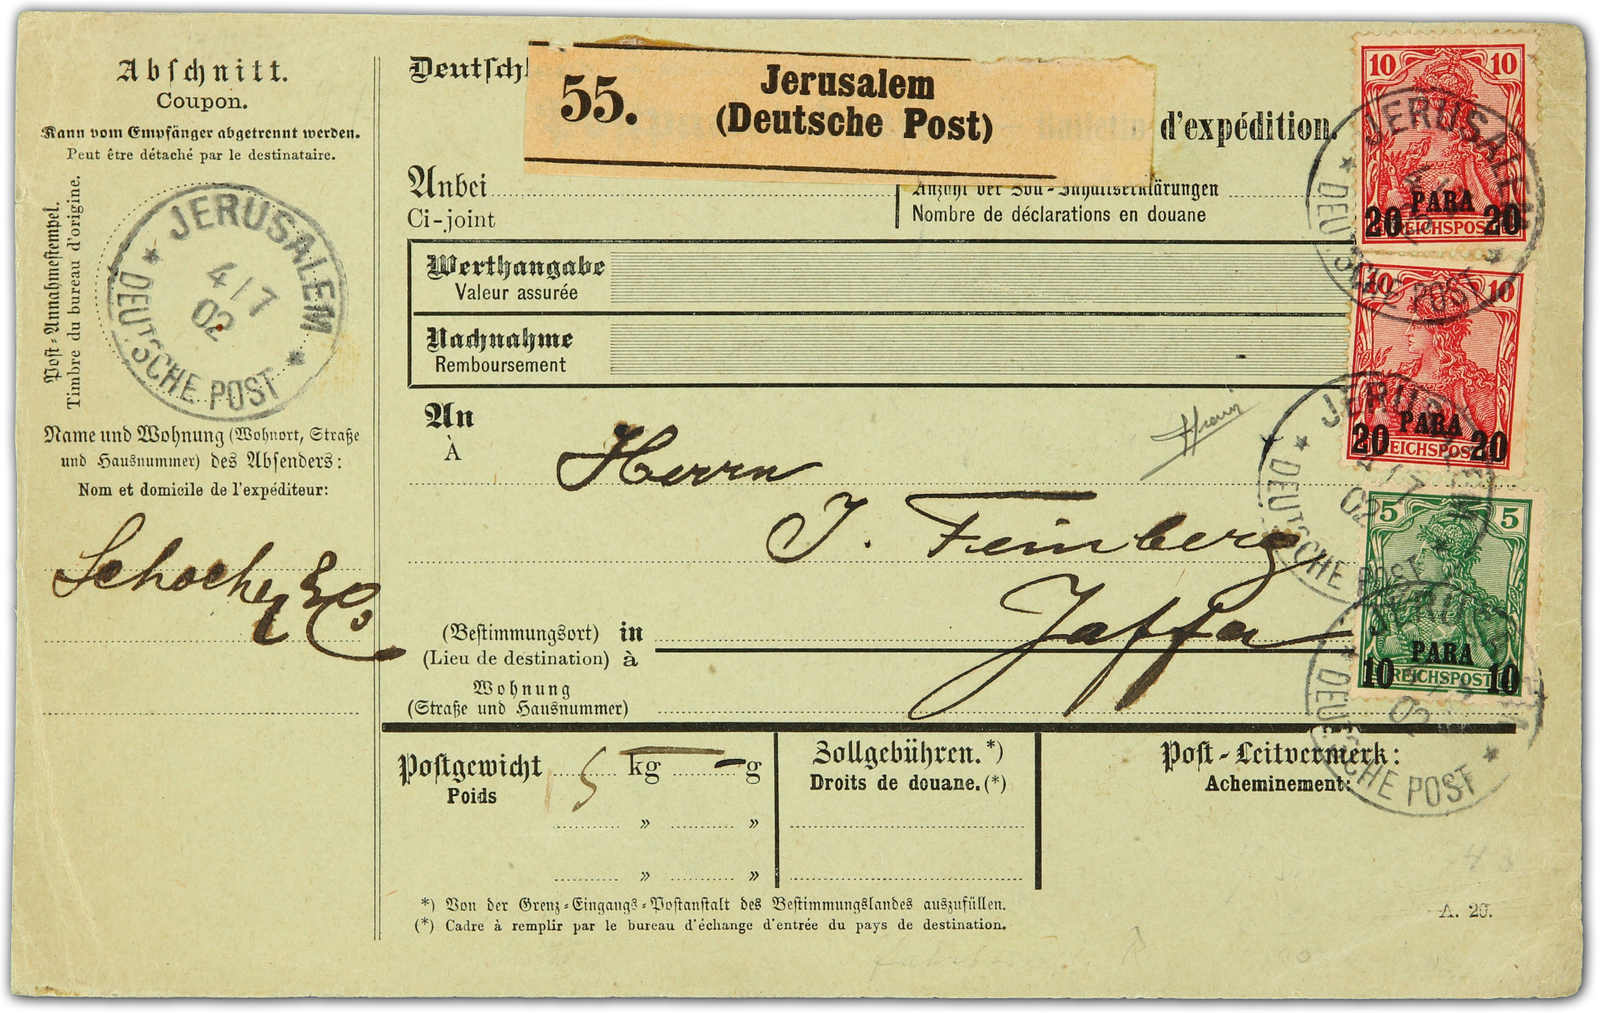 Abschnitt.
Coupon.
Kann vom Empfänger abgetrennt werden.
Peut être détaché par le destinataire.
Post-Annahmestempel.
Timbre du bureau d'origine.
JERUSALEM
4/7
02
* DEUTSCHE POST *
Name und Wohnung (Wohnort, Straße
und Hausnummer) des Absenders:
Nom et domicile de l'expéditeur:
& Co
Deutschl
55.
Jerusalem
(Deutsche Post)
Bulletin d'expédition.
Anbei
Ci-joint
Anzahl der Zoll-Inhaltserklärungen
Nombre de déclarations en douane
Werthangabe
Valeur assurée
Nachnahme
Remboursement
An
À
Herrn
J. Feinberg
(Bestimmungsort) in
(Lieu de destination) à
Jaffa
Wohnung
(Straße und Hausnummer)
Postgewicht 5 kg – g
Poids
» »
» »
Zollgebühren.*)
Droits de douane.(*)
Post-Leitvermerk:
Acheminement:
*) Von der Grenz-Eingangs-Postanstalt des Bestimmungslandes auszufüllen.
(*) Cadre à remplir par le bureau d'échange d'entrée du pays de destination.
A. 29.
10 10
PARA
20 20
REICHSPOST
JERUSALEM
* DEUTSCHE POST *
10 10
PARA
20 20
REICHSPOST
JERUSALEM
4/7
02
* DEUTSCHE POST *
5 5
PARA
10 10
REICHSPOST
JERUSALEM
02
* DEUTSCHE POST *